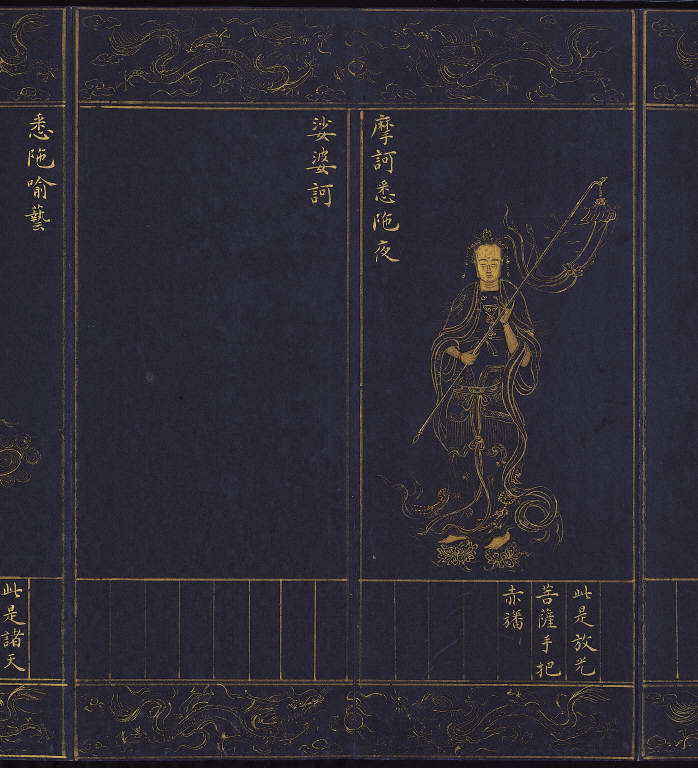 摩訶悉陁夜
此是放光
菩薩手把
赤旛
娑婆訶
悉陁喻藝
此是諸天